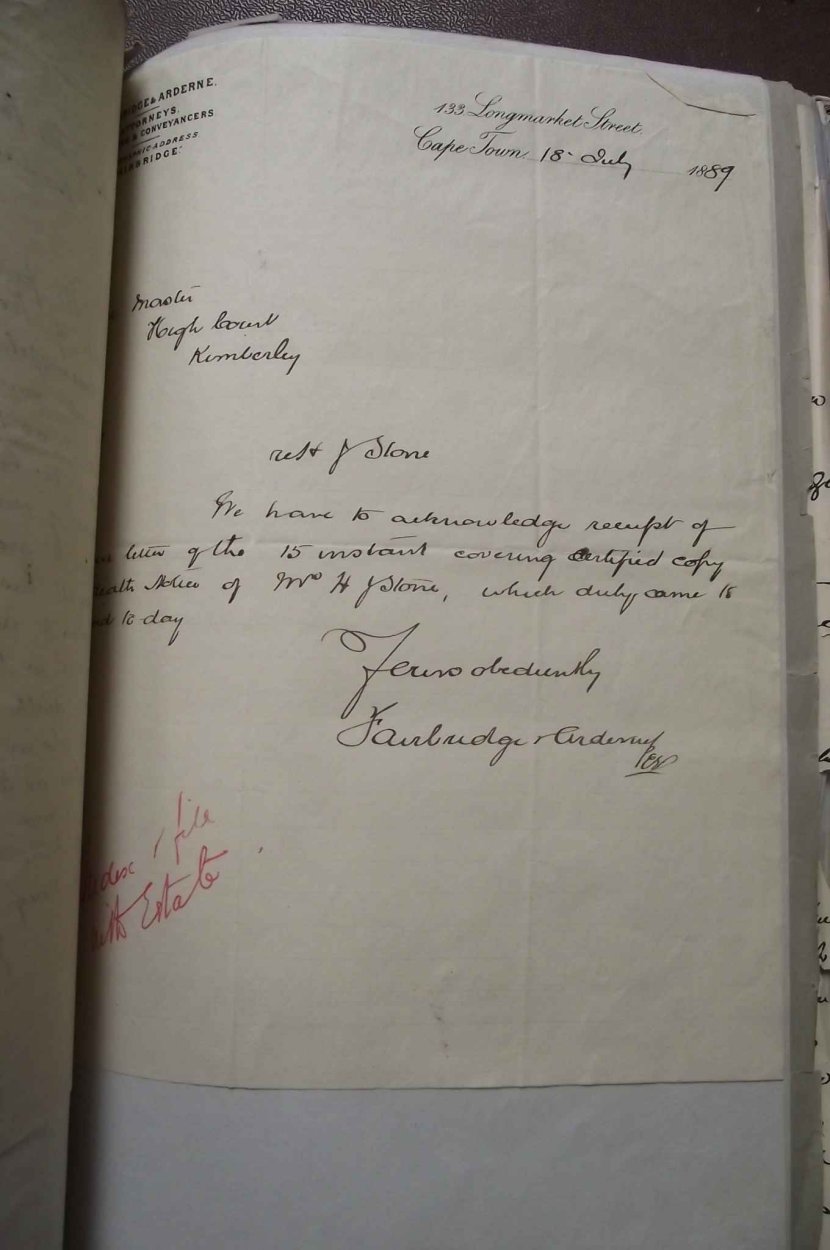 IDGE & ARDERNE.
TTORNEYS.
& CONVEYANCERS
ADDRESS
RBRIDGE."
133 Longmarket Street.
Cape Town 18 July 1889
Master
High Court
Kimberley
re H J Stone
We have to acknowledge receipt of
letter of the 15 instant covering certified copy
eath Notice of Mrs H J Stone, which duly came to
nd to day
Yours obediently
Fairbridge & Arderne
dex & file
with Estate